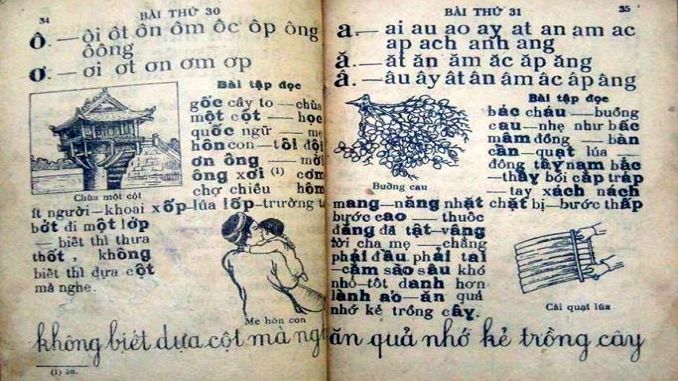 34
BÀI THỨ 30
Ô. — ôi ôt ôn ôm ôc ôp ông
ôông
ơ. — ơi ơt ơn ơm ơp
Bài tập đọc
gốc cây to — chùa
một cột — học
quốc ngữ — mẹ
hôn con — tôi đội
ơn ông — mời
ông xơi (1) cơm
chợ chiều hôm
Chùa một cột
ít người — khoai xốp — lúa lốp — trường
bớt đi một lớp
— biết thì thưa
thốt, không
biết thì dựa cột
mà nghe.
Mẹ hôn con
không biết dựa cột mà ngh
BÀI THỨ 31
35
a. — ai au ao ay at an am ac
ap ach anh ang
Ă. — ăt ăn ăm ăc ăp ăng
Â. — âu ây ât ân âm âc âp âng
Bài tập đọc
bác cháu — buồng
cau — nhẹ như bấc
mâm đồng — bàn
cần — quạt lúa —
đông tây nam bắc
— thầy bói cắp tráp
— tay xách nách
Buồng cau
mang — nặng nhặt chặt bị — bước thấp
bước cao — thuốc
đắng đã tật — vâng
lời cha mẹ — chẳng
phải đầu phải tai
— cắm sào sâu khó
nhổ — tốt danh hơn
lành áo — ăn quả
nhớ kẻ trồng cây.
Cái quạt lúa
ăn quả nhớ kẻ trồng cây